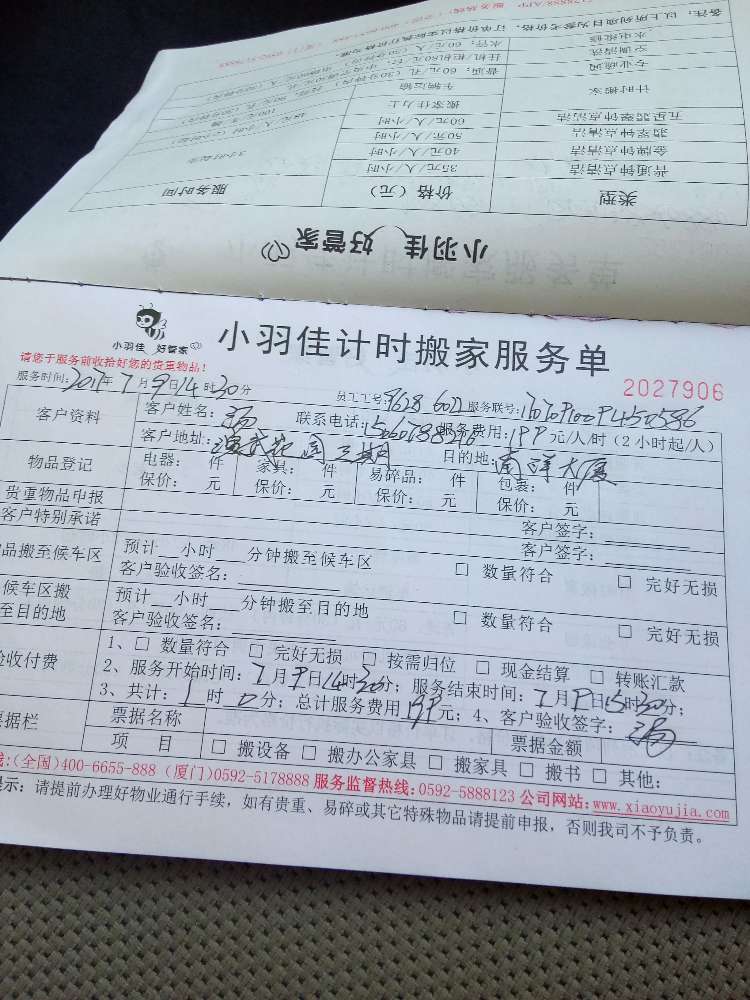 备注：以上所列项目为参考价格，订单价格以实际执行价格为准。
水电维修
空调清洗 挂机/柜机80元
专业疏通 普通：60元
计时搬家 车辆运输
搬家佳力士
五星翡翠钟点清洁 60元/人/小时
翡翠钟点清洁 50元/人/小时
金牌钟点清洁 40元/人/小时
普通钟点清洁 35元/人/小时
类型 价格（元） 服务时间
小羽佳 好管家
小羽佳 好管家
小羽佳计时搬家服务单
请您于服务前收拾好您的贵重物品！
2027906
服务时间：2017年7月9日14时30分 员工工号：9628 6022 服务联号：
客户资料 客户姓名：杨 联系电话： 服务费用：199元/人/时（2小时起/人）
客户地址：演武花园三期 目的地：南洋大厦
物品登记 电器： 件 家具： 件 易碎品： 件 包裹： 件
保价： 元 保价： 元 保价： 元 保价： 元
贵重物品申报 客户签字：
客户特别承诺 客户签字：
品搬至候车区 预计__小时___分钟搬至候车区 □ 数量符合 □ 完好无损
客户验收签名：
候车区搬至目的地 预计__小时___分钟搬至目的地 □ 数量符合 □ 完好无损
客户验收签名：
验收付费 1、□ 数量符合 □ 完好无损 □ 按需归位 □ 现金结算 □ 转账汇款
2、服务开始时间：7月9日14时30分；服务结束时间：7月9日15时30分；
3、共计：1时0分；总计服务费用199元；4、客户验收签字：杨
票据栏 票据名称 票据金额
项 目 □ 搬设备 □ 搬办公家具 □ 搬家具 □ 搬书 □ 其他：
线：(全国)400-6655-888 (厦门)0592-5178888 服务监督热线：0592-5888123 公司网站：www.xiaoyujia.com
提示：请提前办理好物业通行手续，如有贵重、易碎或其它特殊物品请提前申报，否则我司不予负责。